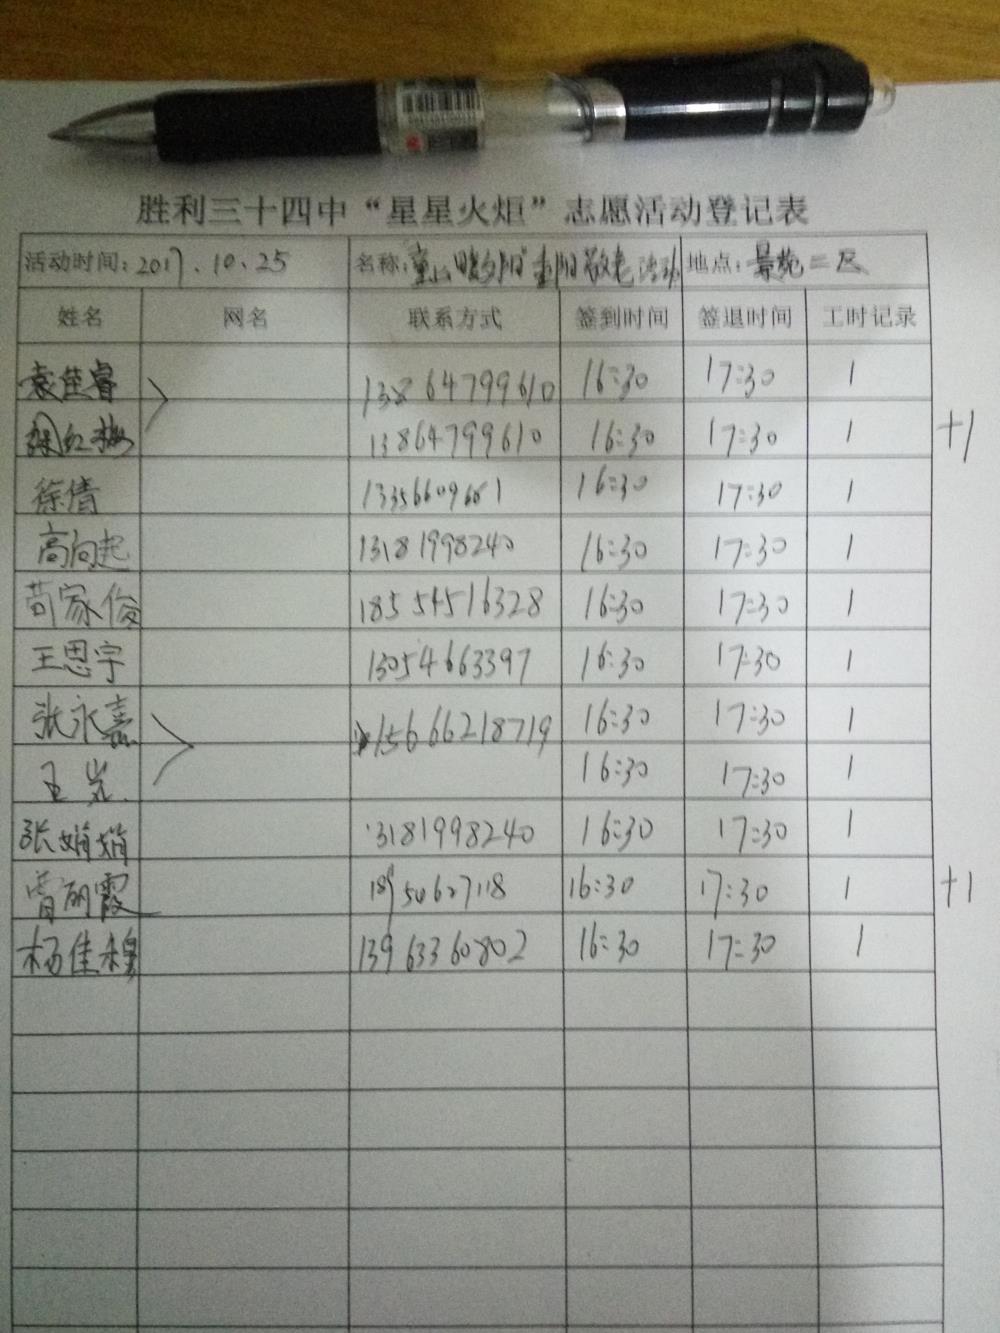 胜利三十四中“星星火炬”志愿活动登记表
活动时间:2017.10.25 名称: 重阳敬老活动 地点:景苑二区
姓名 网名 联系方式 签到时间 签退时间 工时记录
袁佳睿 13864799610 16:30 17:30 1
红梅 13864799610 16:30 17:30 1 +1
徐倩 16:30 17:30 1
高向起 13181998240 16:30 17:30 1
苟家俊 18554516328 16:30 17:30 1
王思宇 13054663397 16:30 17:30 1
张永嘉 15666218719 16:30 17:30 1
王岚 16:30 17:30 1
张娟娟 13181998240 16:30 17:30 1
曹丽霞 16:30 17:30 1 +1
杨佳穆 13963360802 16:30 17:30 1